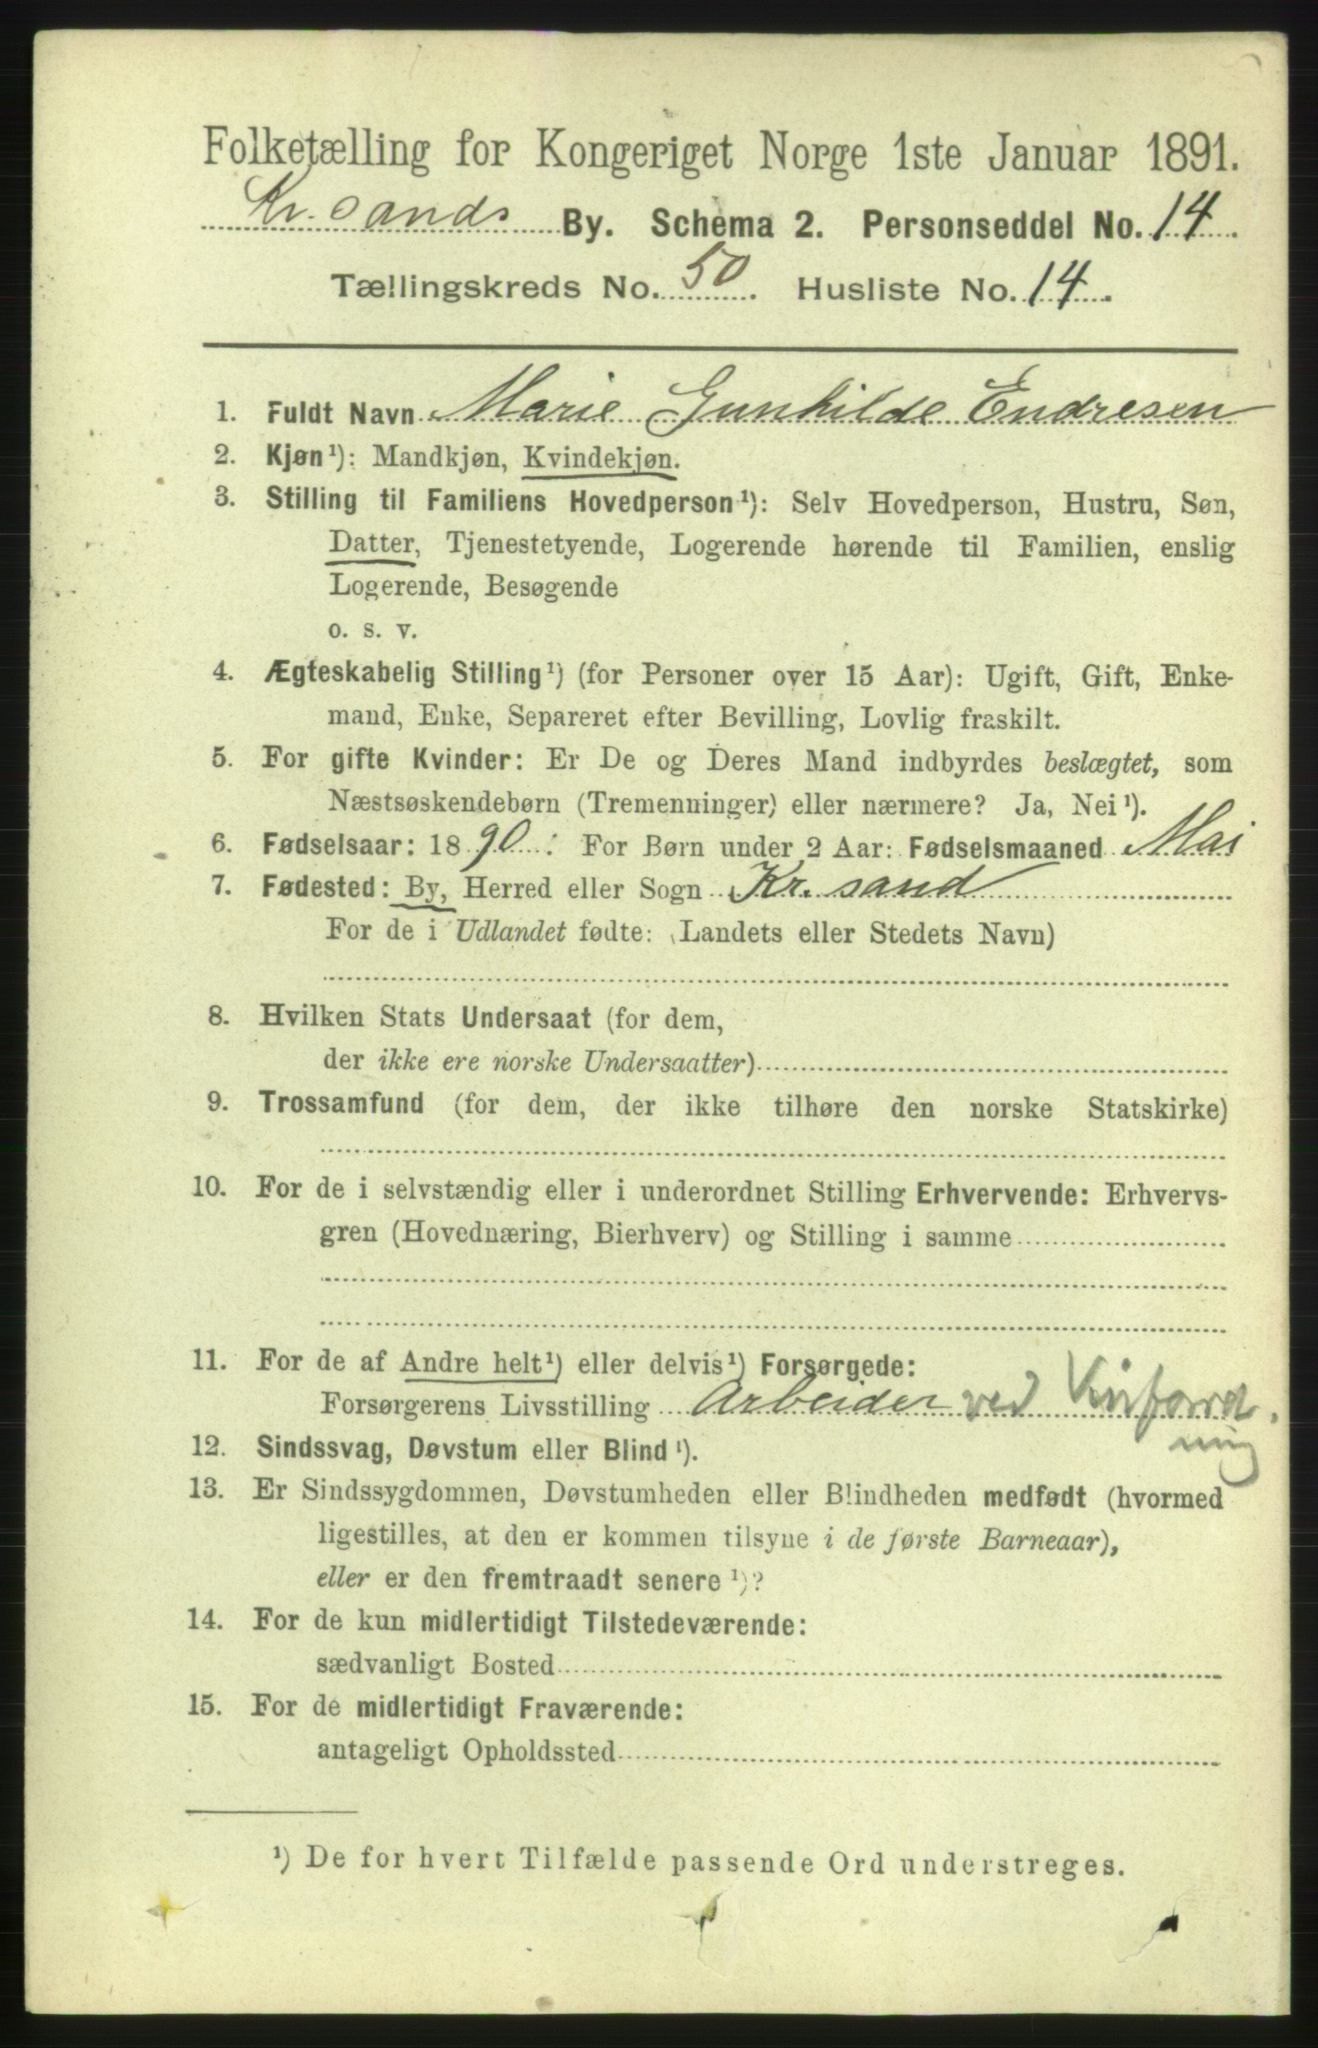 Folketælling for Kongeriget Norge 1ste Januar 1891.
Kr.sands By. Schema 2. Personseddel No. 14.
Tællingskreds No. 50. Husliste No. 14.
1. Fuldt Navn Marie Gunhilde Endresen
2. Kjøn¹): Mandkjøn, Kvindekjøn.
3. Stilling til Familiens Hovedperson¹): Selv Hovedperson, Hustru, Søn,
Datter, Tjenestetyende, Logerende hørende til Familien, enslig
Logerende, Besøgende
o. s. v.
4. Ægteskabelig Stilling¹) (for Personer over 15 Aar): Ugift, Gift, Enke-
mand, Enke, Separeret efter Bevilling, Lovlig fraskilt.
5. For gifte Kvinder: Er De og Deres Mand indbyrdes beslægtet, som
Næstsøskendebørn (Tremenninger) eller nærmere? Ja, Nei¹).
6. Fødselsaar: 1890: For Børn under 2 Aar: Fødselsmaaned Mai
7. Fødested: By, Herred eller Sogn Kr. sand
For de i Udlandet fødte: (Landets eller Stedets Navn)
8. Hvilken Stats Undersaat (for dem,
der ikke ere norske Undersaatter)
9. Trossamfund (for dem, der ikke tilhøre den norske Statskirke)
10. For de i selvstændig eller i underordnet Stilling Erhvervende: Erhvervs-
gren (Hovednæring, Bierhverv) og Stilling i samme
11. For de af Andre helt¹) eller delvis¹) Forsørgede:
Forsørgerens Livsstilling Arbeider ved
12. Sindssvag, Døvstum eller Blind¹).
13. Er Sindssygdommen, Døvstumheden eller Blindheden medfødt (hvormed
ligestilles, at den er kommen tilsyne i de første Barneaar),
eller er den fremtraadt senere¹)?
14. For de kun midlertidigt Tilstedeværende:
sædvanligt Bosted
15. For de midlertidigt Fraværende:
antageligt Opholdssted
¹) De for hvert Tilfælde passende Ord understreges.